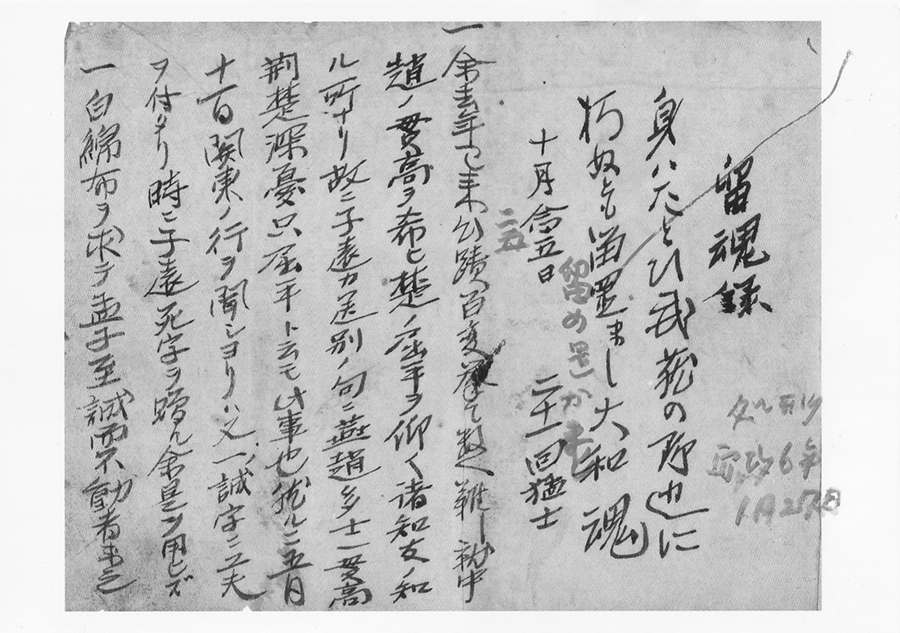 留魂録
身ハたとひ武蔵の野辺に
朽ぬとも留置まし大和魂
留め置かま
十月念五日　二十一回猛士
二五
一余去年已来心蹟百変挙て数へ難し就中
趙ノ貫高ヲ希ヒ楚ノ屈平ヲ仰ク諸知友ノ知
ル所ナリ故ニ子遠カ送別ノ句ニ燕趙多士一貫高
荊楚深憂只屈平ト云モ此事也然ルニ五月
十一日関東ノ行ヲ聞シヨリハ又一誠字ニ工夫
ヲ付タリ時ニ子遠死字ヲ贈ル余是ヲ用ヒズ
一白綿布ヲ求テ孟子至誠而不動者未之
処刑
安政6年
1月27日